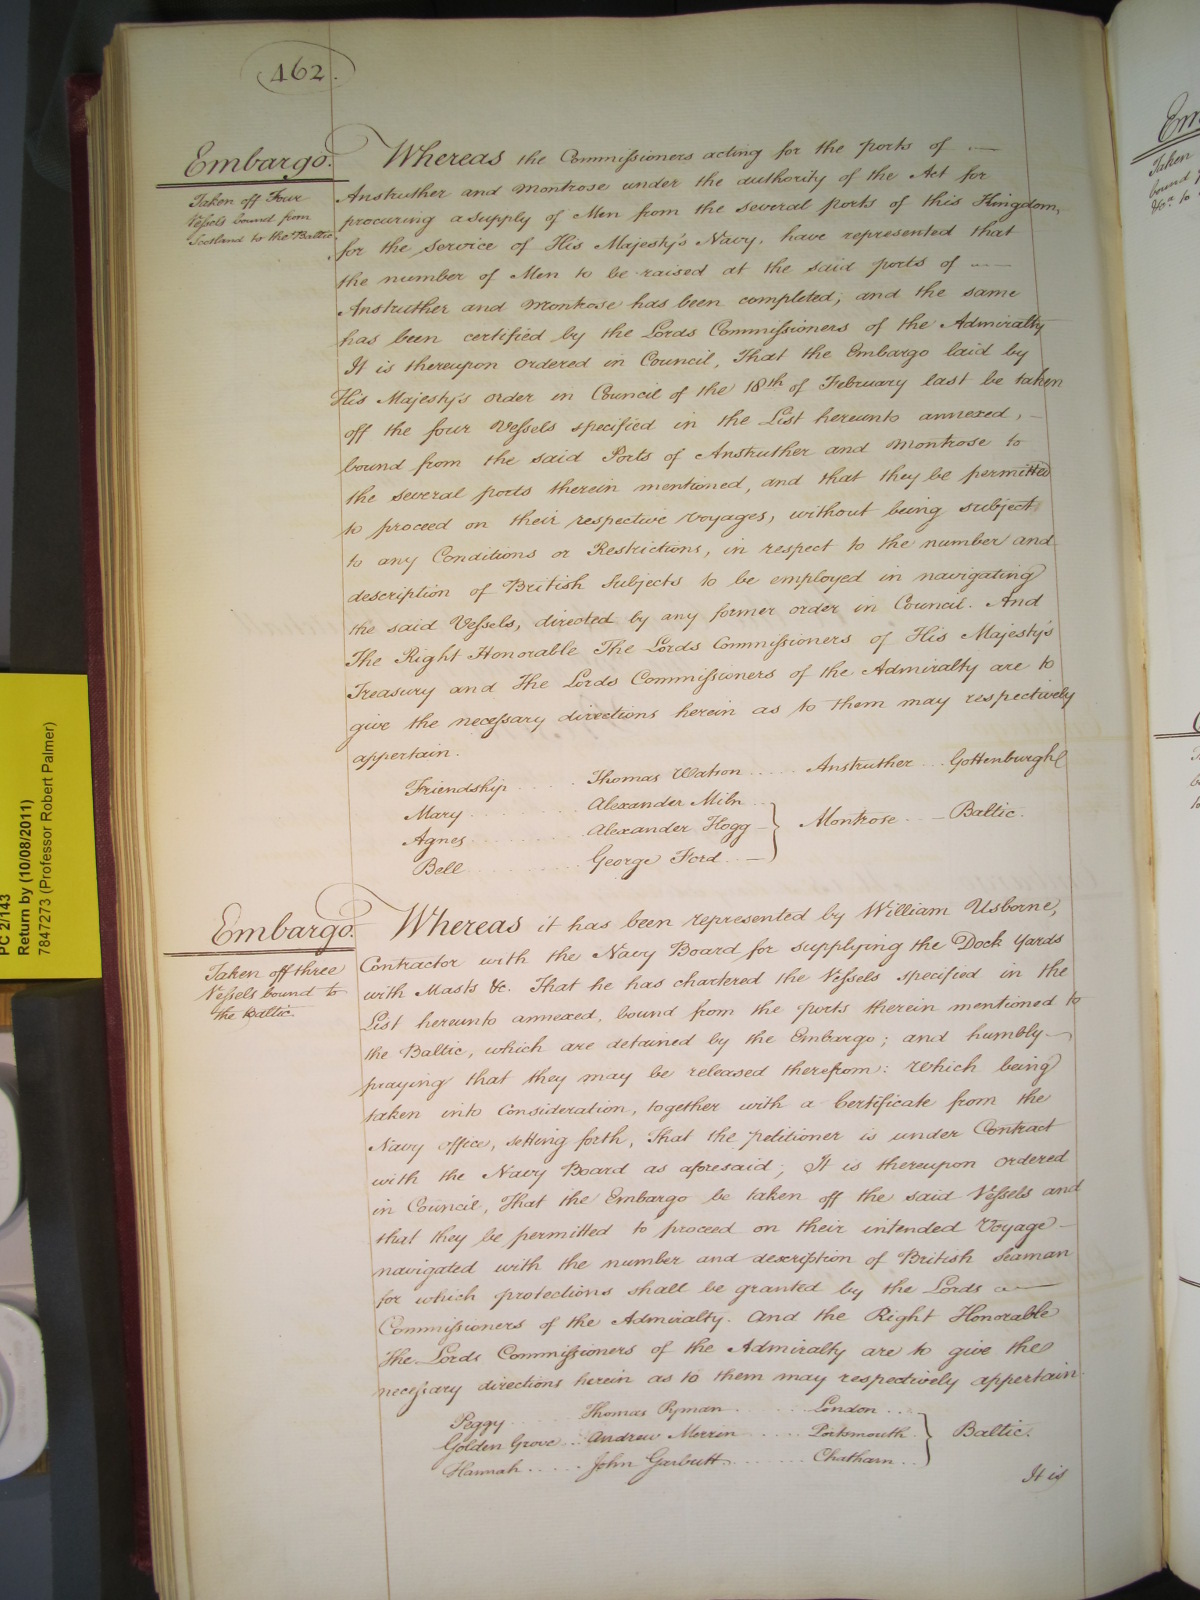 462.
Embargo.
Taken off Four
Vessels bound from
Scotland to the Baltic
Whereas the Commissioners acting for the ports of
Anstruther and Montrose under the authority of the Act for
procuring a supply of Men from the several ports of this Kingdom,
for the service of His Majesty's Navy, have represented that
the number of Men to be raised at the said ports of
Anstruther and Montrose has been completed, and the same
has been certified by the Lords Commissioners of the Admiralty
It is thereupon ordered in Council, That the Embargo laid by
His Majesty's order in Council of the 18th of February last be taken
off the four Vessels specified in the List hereunto annexed,
bound from the said Ports of Anstruther and Montrose to
the several ports therein mentioned, and that they be permitted
to proceed on their respective voyages, without being subject
to any Conditions or Restrictions, in respect to the number and
description of British Subjects to be employed in navigating
the said Vessels, directed by any former order in Council. And
The Right Honorable The Lords Commissioners of His Majesty's
Treasury and The Lords Commissioners of the Admiralty are to
give the necessary directions herein as to them may respectively
appertain.
Friendship .... Thomas Watson ..... Anstruther ... Gottenburgh
Mary ........ Alexander Miln
Agnes ........ Alexander Hogg } Montrose .... Baltic.
Bell ........ George Ford
Embargo.
Taken off three
Vessels bound to
the Baltic.
Whereas it has been represented by William Usborne,
Contractor with the Navy Board for supplying the Dock Yards
with Masts &c. That he has chartered the Vessels specified in the
List hereunto annexed, bound from the ports therein mentioned to
the Baltic, which are detained by the Embargo; and humbly
praying that they may be released therefrom: Which being
taken into Consideration, together with a Certificate from the
Navy office, setting forth, That the petitioner is under Contract
with the Navy Board as aforesaid; It is thereupon ordered
in Council, That the Embargo be taken off the said Vessels and
that they be permitted to proceed on their intended Voyage
navigated with the number and description of British Seaman
for which protections shall be granted by the Lords
Commissioners of the Admiralty. And the Right Honorable
The Lords Commissioners of the Admiralty are to give the
necessary directions herein as to them may respectively appertain.
Peggy ..... Thomas Pyman ....... London ....
Golden Grove .. Andrew Merrin ..... Portsmouth . } Baltic.
Hannah ..... John Garbutt ........ Chatham ..
It is
PC 2/143
Return by (10/08/2011)
7847273 (Professor Robert Palmer)
Em
Taken
bound
&ca to